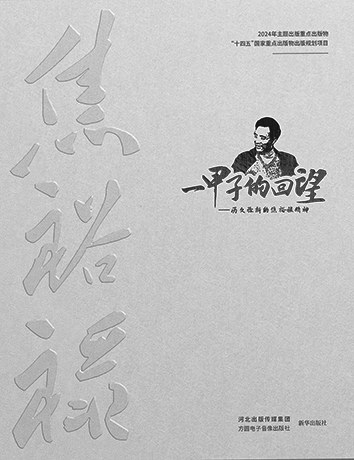 2024年主题出版重点出版物
"十四五"国家重点出版物出版规划项目
焦裕禄
一甲子的回望
——历久弥新的焦裕禄精神
河北出版传媒集团
方圆电子音像出版社
新华出版社